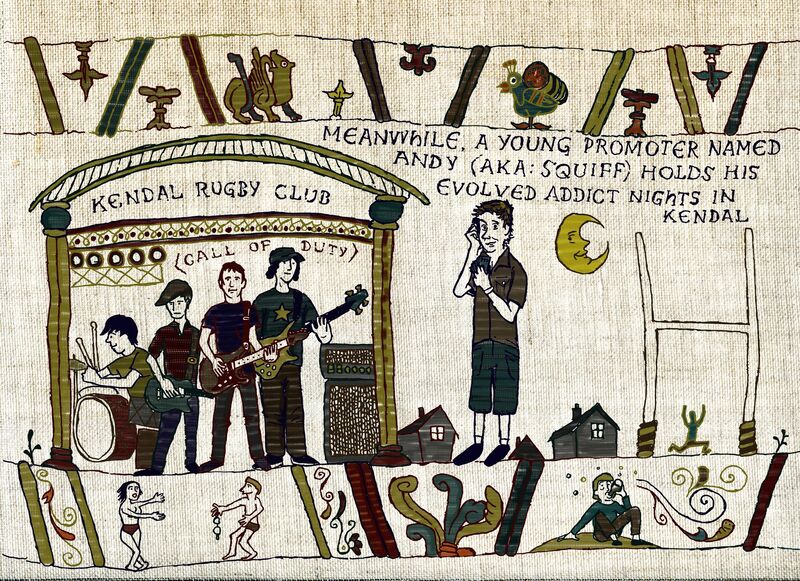 MEANWHILE, A YOUNG PROMOTER NAMED
ANDY (AKA: SQUIFF) HOLDS HIS
EVOLVED ADDICT NIGHTS IN
KENDAL
KENDAL RUGBY CLUB
(CALL OF DUTY)